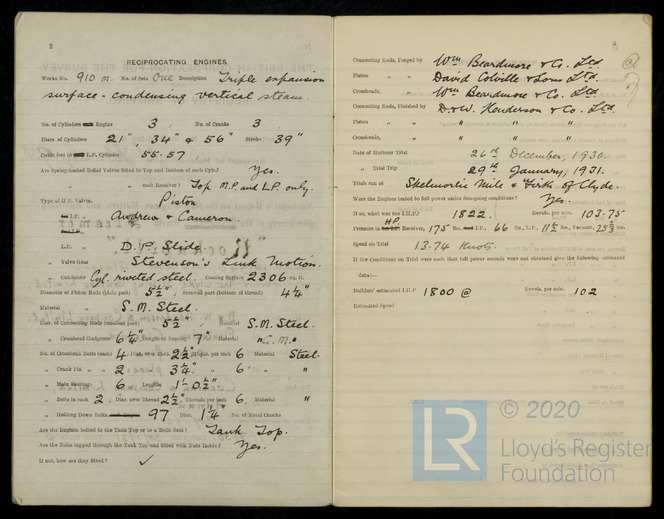 2
RECIPROCATING ENGINES.
Works No. 910 M. No. of Sets One Description Triple expansion
surface-condensing vertical steam.
No. of Cylinders each Engine 3 No. of Cranks 3
Diars of Cylinders 21", 34" & 56" Stroke 39"
Cubic feet in each L.P. Cylinder 55.57
Are Spring-loaded Relief Valves fitted to Top and Bottom of each Cylr.? Yes.
" " each Receiver? Top M.P. and L.P. only.
Type of H.P. Valves, Piston
" L.P. " Andrew & Cameron.
" L.P. " D.P. Slide
" Valve Gear Stevenson's Link Motion.
" Condenser Cyl. riveted steel. Cooling Surface 2306 sq. ft.
Diameter of Piston Rods (plain part) 5½" Screwed part (bottom of thread) 4¼"
Material " S.M. Steel.
Diar. of Connecting Rods (smallest part) 5½" Material S.M. Steel.
" Crosshead Gudgeons 6¼" Length of Bearing 7" Material
No. of Crosshead Bolts (each) 4 Diar. over Thrd. 2½" Thrds. per inch 6 Material Steel.
" Crank Pin " " 2 " 3¼" " 6 " "
" Main Bearings 6 Lengths 1'-0½"
" Bolts in each 2 Diar. over Thread 2½" Threads per inch 6 Material "
" Holding Down Bolts 97 Diar. 1¼" No. of Metal Chocks
Are the Engines bolted to the Tank Top or to a Built Seat? Tank Top.
Are the Bolts tapped through the Tank Top and fitted with Nuts Inside? Yes.
If not, how are they fitted? ✓
3
Connecting Rods, Forged by Wm. Beardmore & Co. Ltd
Piston " " David Colville & Sons Ltd.
Crossheads, " Wm Beardmore & Co. Ltd.
Connecting Rods, Finished by D. & W. Henderson & Co. Ltd.
Piston " " " " "
Crossheads, " " " "
Date of Harbour Trial 26th December, 1930.
" Trial Trip 29th January, 1931.
Trials run at Skelmorlie Mile & Firth of Clyde.
Were the Engines tested to full power under Sea-going conditions? Yes.
If so, what was the I.H.P.? 1822. Revols. per min. 103.75
Pressure in H.P. Receiver, 175 lbs. L.P. 66 lbs., L.P. 11½ lbs., Vacuum,
Speed on Trial 13.74 Knots.
If the Conditions on Trial were such that full power records were not obtained give the following estimated
data:—
Builders' estimated I.H.P. 1800 @ Revols. per min. 102
Estimated Speed
LR © 2020
Lloyd's Register
Foundation